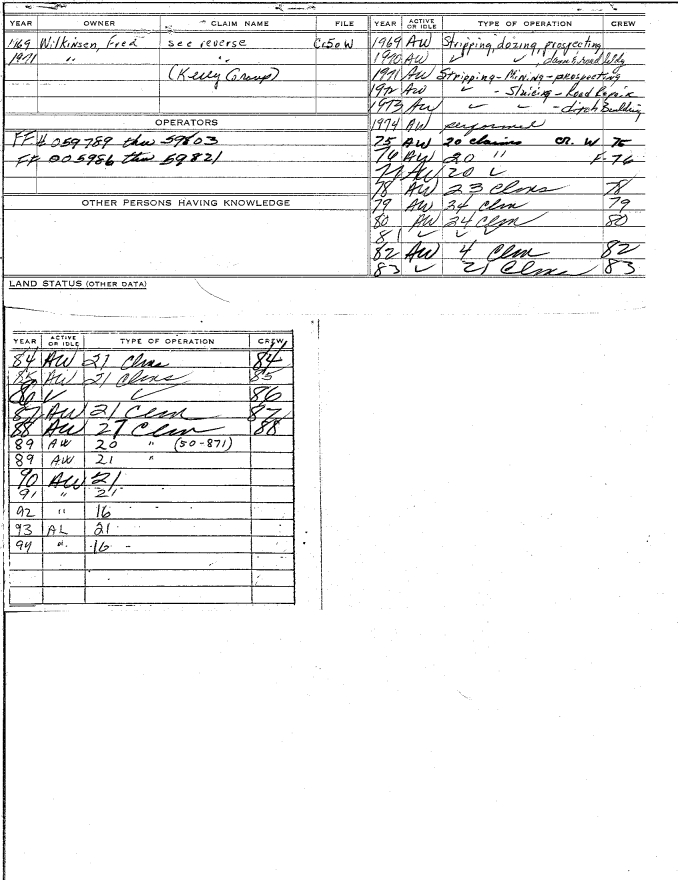 YEAR OWNER CLAIM NAME FILE
1969 Wilkinsen, Fred see reverse Cr50W
1971 " "
(Kelly Group)
OPERATORS
FF# 059789 thru 59803
FF 005986 thru 59821
OTHER PERSONS HAVING KNOWLEDGE
YEAR ACTIVE OR IDLE TYPE OF OPERATION CREW
1969 AW Stripping, dozing, prospecting
1970 AW ✓ ✓, dam & road bldg
1971 AW Stripping - Mining - prospecting
1972 AW ✓ - Sluicing - Road Repair
1973 AW ✓ ✓ - ditch Building
1974 AW performed
75 AW 20 claims CR. W 75
76 AW 20 " F-76
77 AW 20 ✓
78 AW 23 Clms 78
79 AW 24 Clm 79
80 AW 24 Clm 80
81 ✓ ✓ ✓
82 AW 4 Clm 82
83 ✓ 21 Clms 83
LAND STATUS (OTHER DATA)
YEAR ACTIVE OR IDLE TYPE OF OPERATION CREW
84 AW 21 Clms 84
85 AW 21 Clms 85
86 ✓ ✓ 86
87 AW 21 Clm 87
88 AW 27 Clm 88
89 AW 20 " (50-871)
89 AW 21 "
90 AW 21
91 " 21
92 " 16
93 AL 21
94 " 16 -